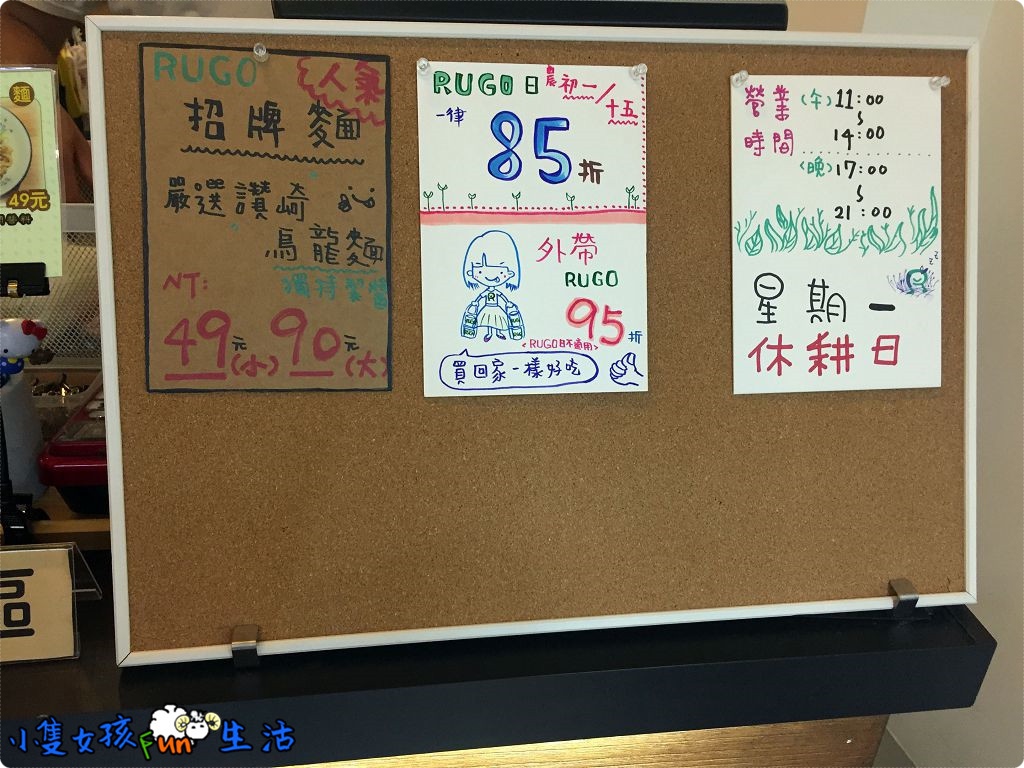 RUGO
人氣
招牌麵
嚴選讚崎
烏龍麵
獨特製醬
NT:
49元(小) 90元(大)
RUGO日 農初一/十五
一律
85折
外帶
RUGO
95折
<RUGO日不適用>
買回家一樣好吃
營業時間
(午)11:00
~
14:00
(晚)17:00
~
21:00
z z
星期一
休耕日
麵
49元
區
小隻女孩fun生活